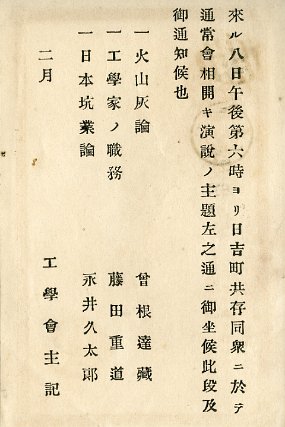 來ル八日午後第六時ヨリ日吉町共存同衆ニ於テ
通常會相開キ演說ノ主題左之通ニ御坐候此段及
御通知候也
一火山灰論 曾根達藏
一工學家ノ職務 藤田重道
一日本坑業論 永井久太郎
二月 工學會主記